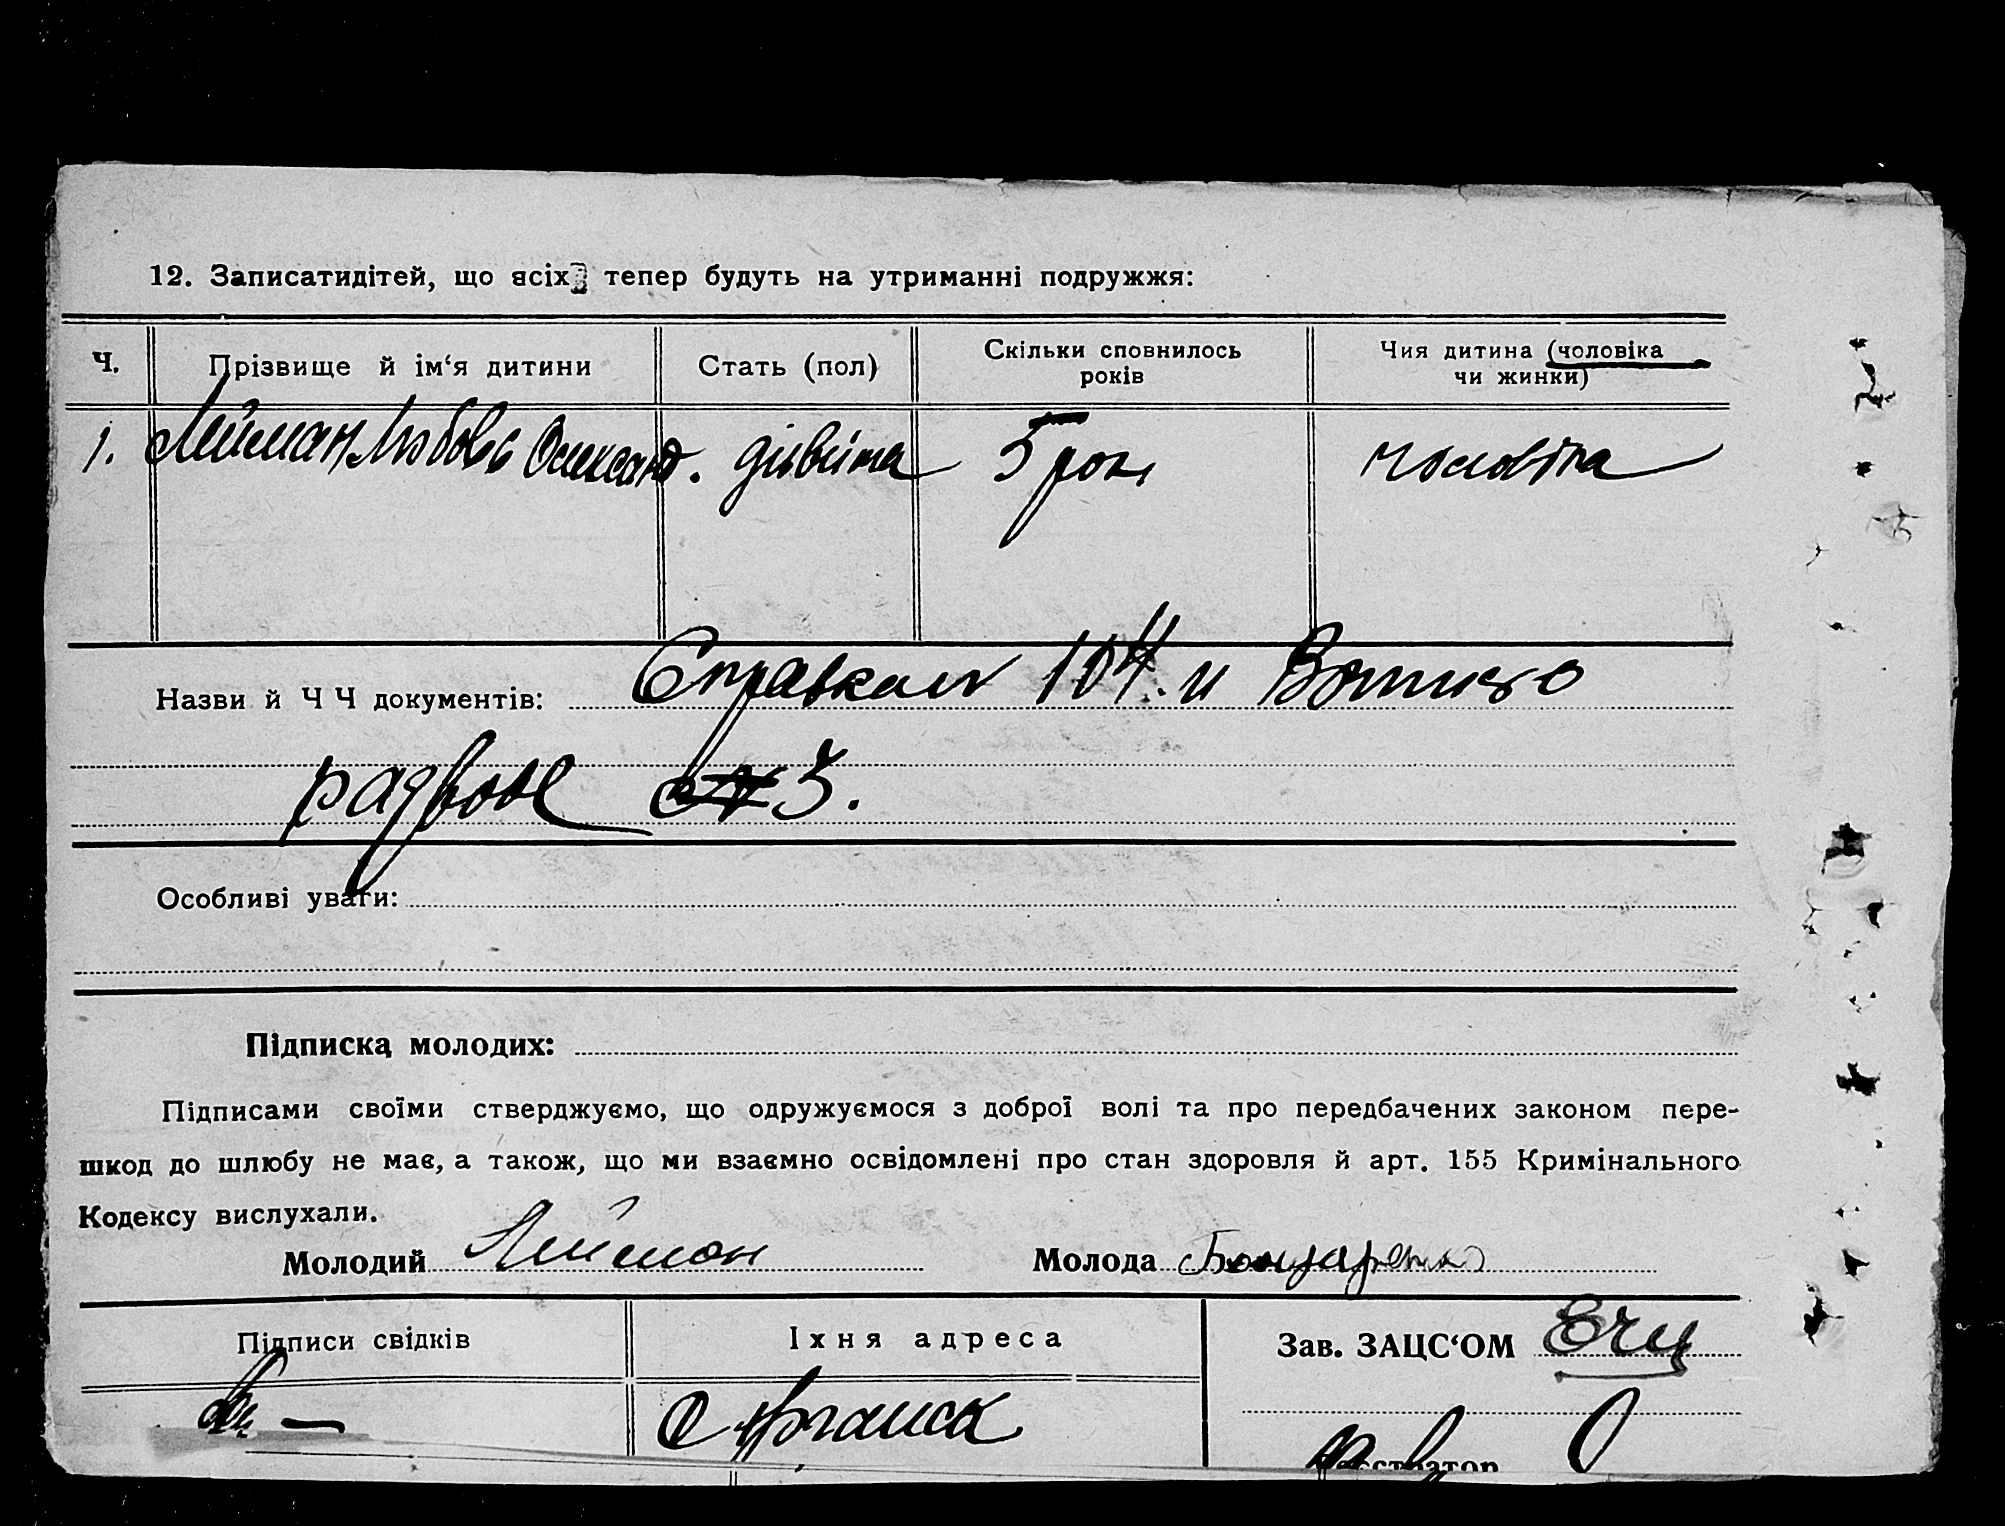 12. Записатидітей, що всіх тепер будуть на утриманні подружжя:
Ч. Прізвище й ім‘я дитини Стать (пол) Скільки сповнилось років Чия дитина (чоловіка чи жинки)
1. Лейман Любовь Олександ. дівчина 5 рок. чоловіка
Назви й Ч Ч документів: 104. и
3.
Особливі уваги:
Підписка молодих:
Підписами своїми стверджуємо, що одружуємося з доброї волі та про передбачених законом пере-
шкод до шлюбу не має, а також, що ми взаємно освідомлені про стан здоровля й арт. 155 Кримінального
Кодексу вислухали.
Молодий Лейман Молода Бондаренко
Підписи свідків Їхня адреса Зав. ЗАЦС‘ОМ